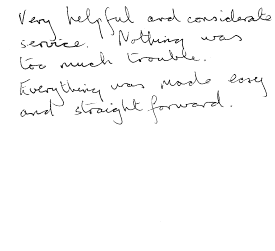 Very helpful and considerate
service. Nothing was
too much trouble.
Everything was made easy
and straightforward.